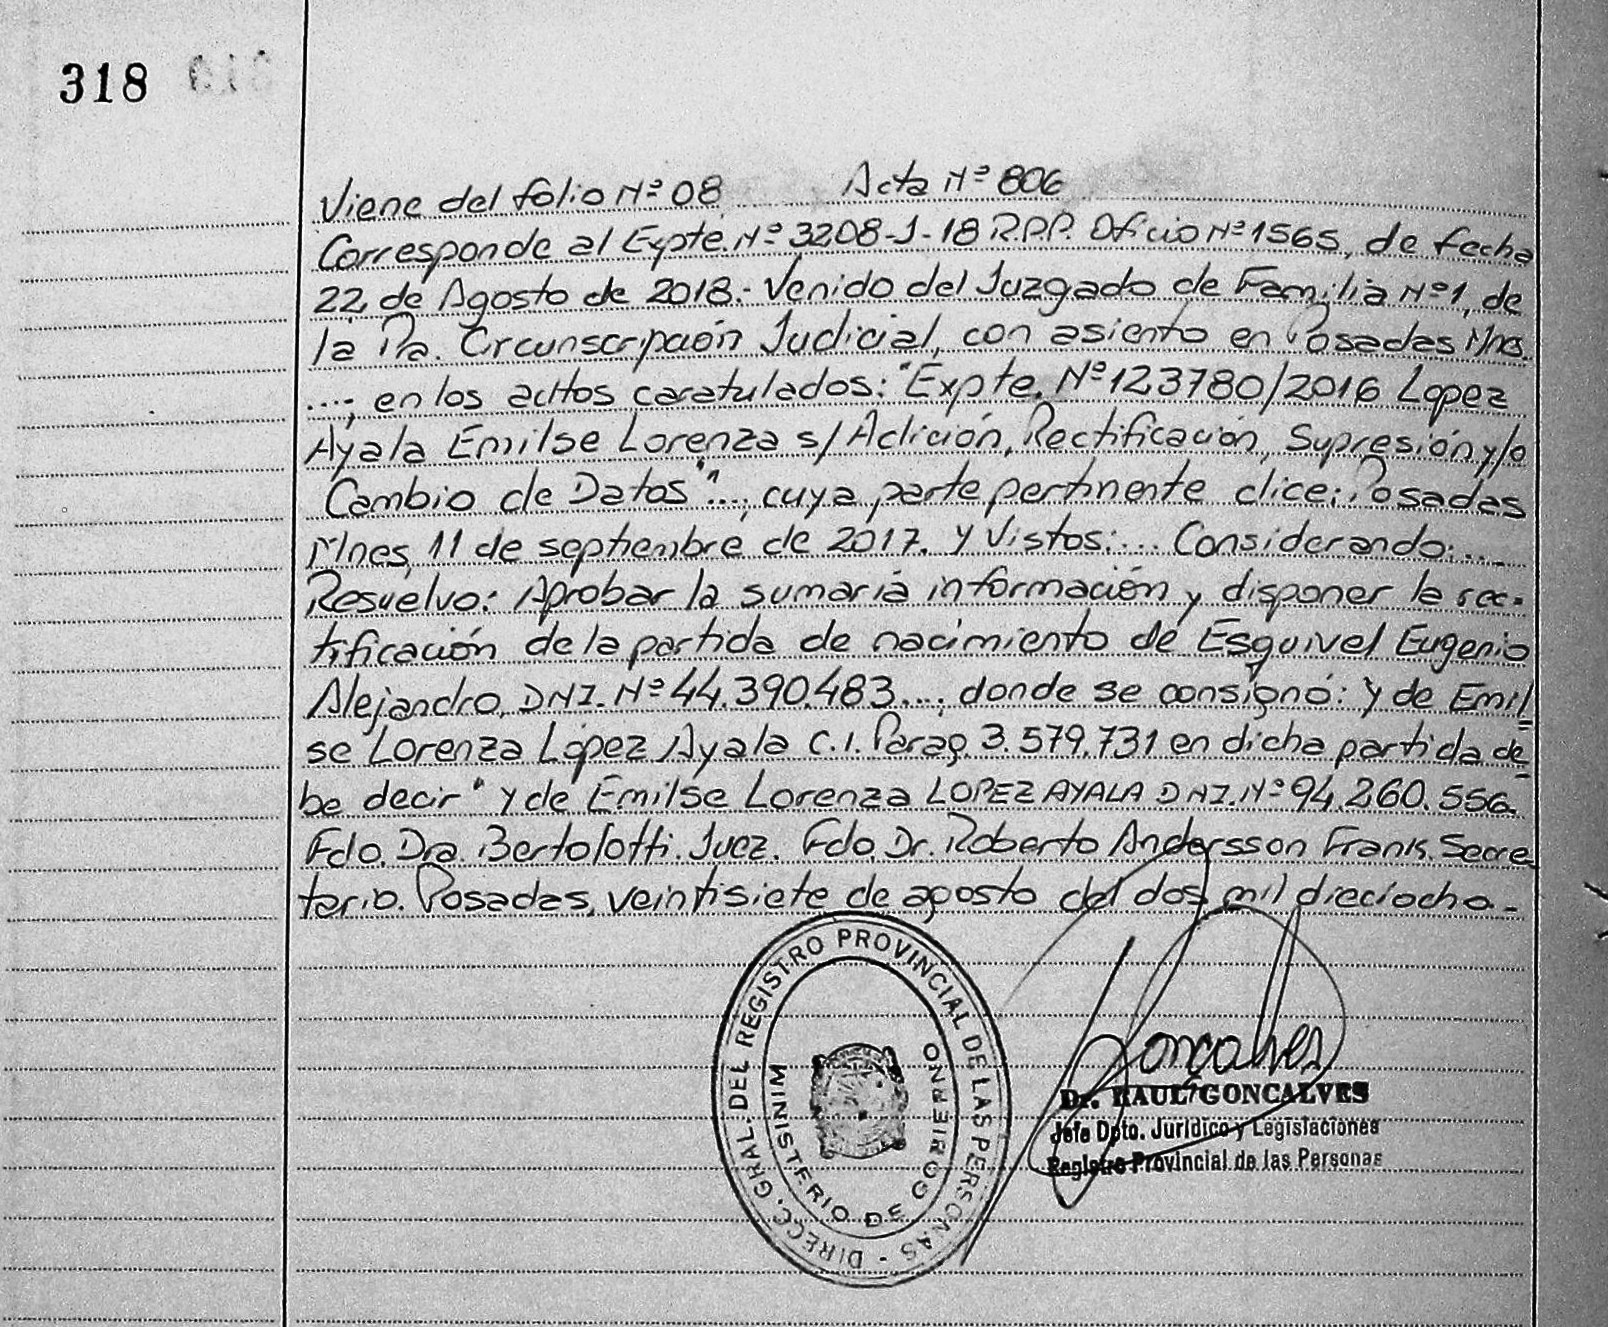 318
Viene del folio Nº 08 Acta Nº 806
Corresponde al Expte. Nº 3208-J-18 R.P.P. Oficio Nº 1565, de fecha
22 de Agosto de 2018.- Venido del Juzgado de Familia Nº 1, de
la Pra. Circunscripción Judicial, con asiento en Posadas Mnes.
....; en los autos caratulados: "Expte. Nº 123780/2016 Lopez
Ayala Emilse Lorenza s/ Adición, Rectificación, Supresión y/o
Cambio de Datos"...., cuya parte pertinente dice: Posadas
Mnes, 11 de septiembre de 2017. Y Vistos:... Considerando:...
Resuelvo: Aprobar la sumaria información y disponer la rec-
tificación de la partida de nacimiento de Esquivel Eugenio
Alejandro, DNI. Nº 44.390.483...., donde se consignó: y de Emil
se Lorenza López Ayala C.I. Parag. 3.579.731 en dicha partida de
be decir " y de Emilse Lorenza LOPEZ AYALA DNI. Nº 94.260.556.
Fdo. Dra. Bertolotti. Juez. Fdo. Dr. Roberto Andersson Frank. Secre-
tario. Posadas, veintisiete de agosto del dos mil dieciocho.-
DIRECC. GRAL. DEL REGISTRO PROVINCIAL DE LAS PERSONAS -
MINISTERIO DE GOBIERNO
Goncalves
Dr. RAUL GONCALVES
Jefe Dpto. Jurídico y Legislaciones
Registro Provincial de las Personas